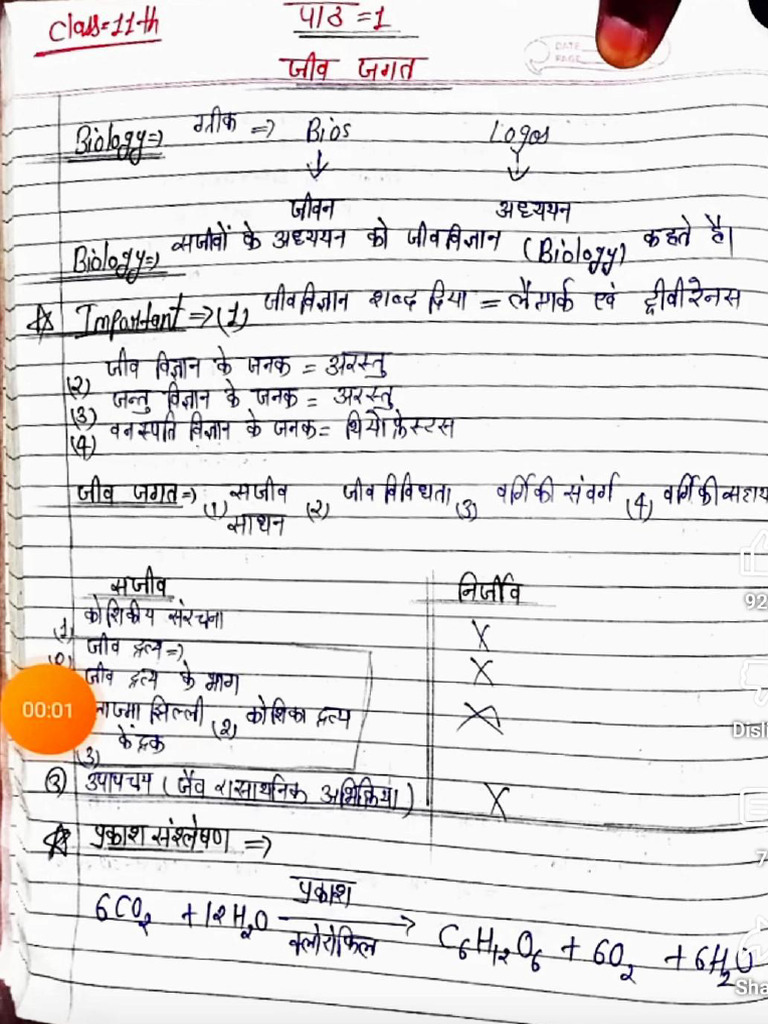 Class=11-th
पाठ =1
जीव जगत
DATE
PAGE
Biology=> ग्रीक => Bios Logos
जीवन अध्ययन
Biology=> सजीवों के अध्ययन को जीवविज्ञान (Biology) कहते है।
Important => (1) जीवविज्ञान शब्द दिया = लैमार्क एवं ट्रीवीरेनस
(2) जीव विज्ञान के जनक = अरस्तु
(3) जन्तु विज्ञान के जनक = अरस्तु
(4) वनस्पति विज्ञान के जनक = थियोफ्रेस्टस
जीव जगत=> (1) सजीव (2) जीव विविधता (3) वर्गिकी संवर्ग (4) वर्गिकी सहाय
साधन
सजीव निर्जीव
(1) कोशिकीय संरचना X
जीव द्रव्य => X
जीव द्रव्य के भाग
झिल्ली (2) कोशिका द्रव्य X
(3) केंद्रक
(3) उपापचय (जैव रासायनिक अभिक्रिया) X
प्रकाश संश्लेषण =>
प्रकाश
6CO2 + 12H2O → C6H12O6 + 6O2 + 6H2O
क्लोरोफिल
00:01
92
Disli
7
Sha